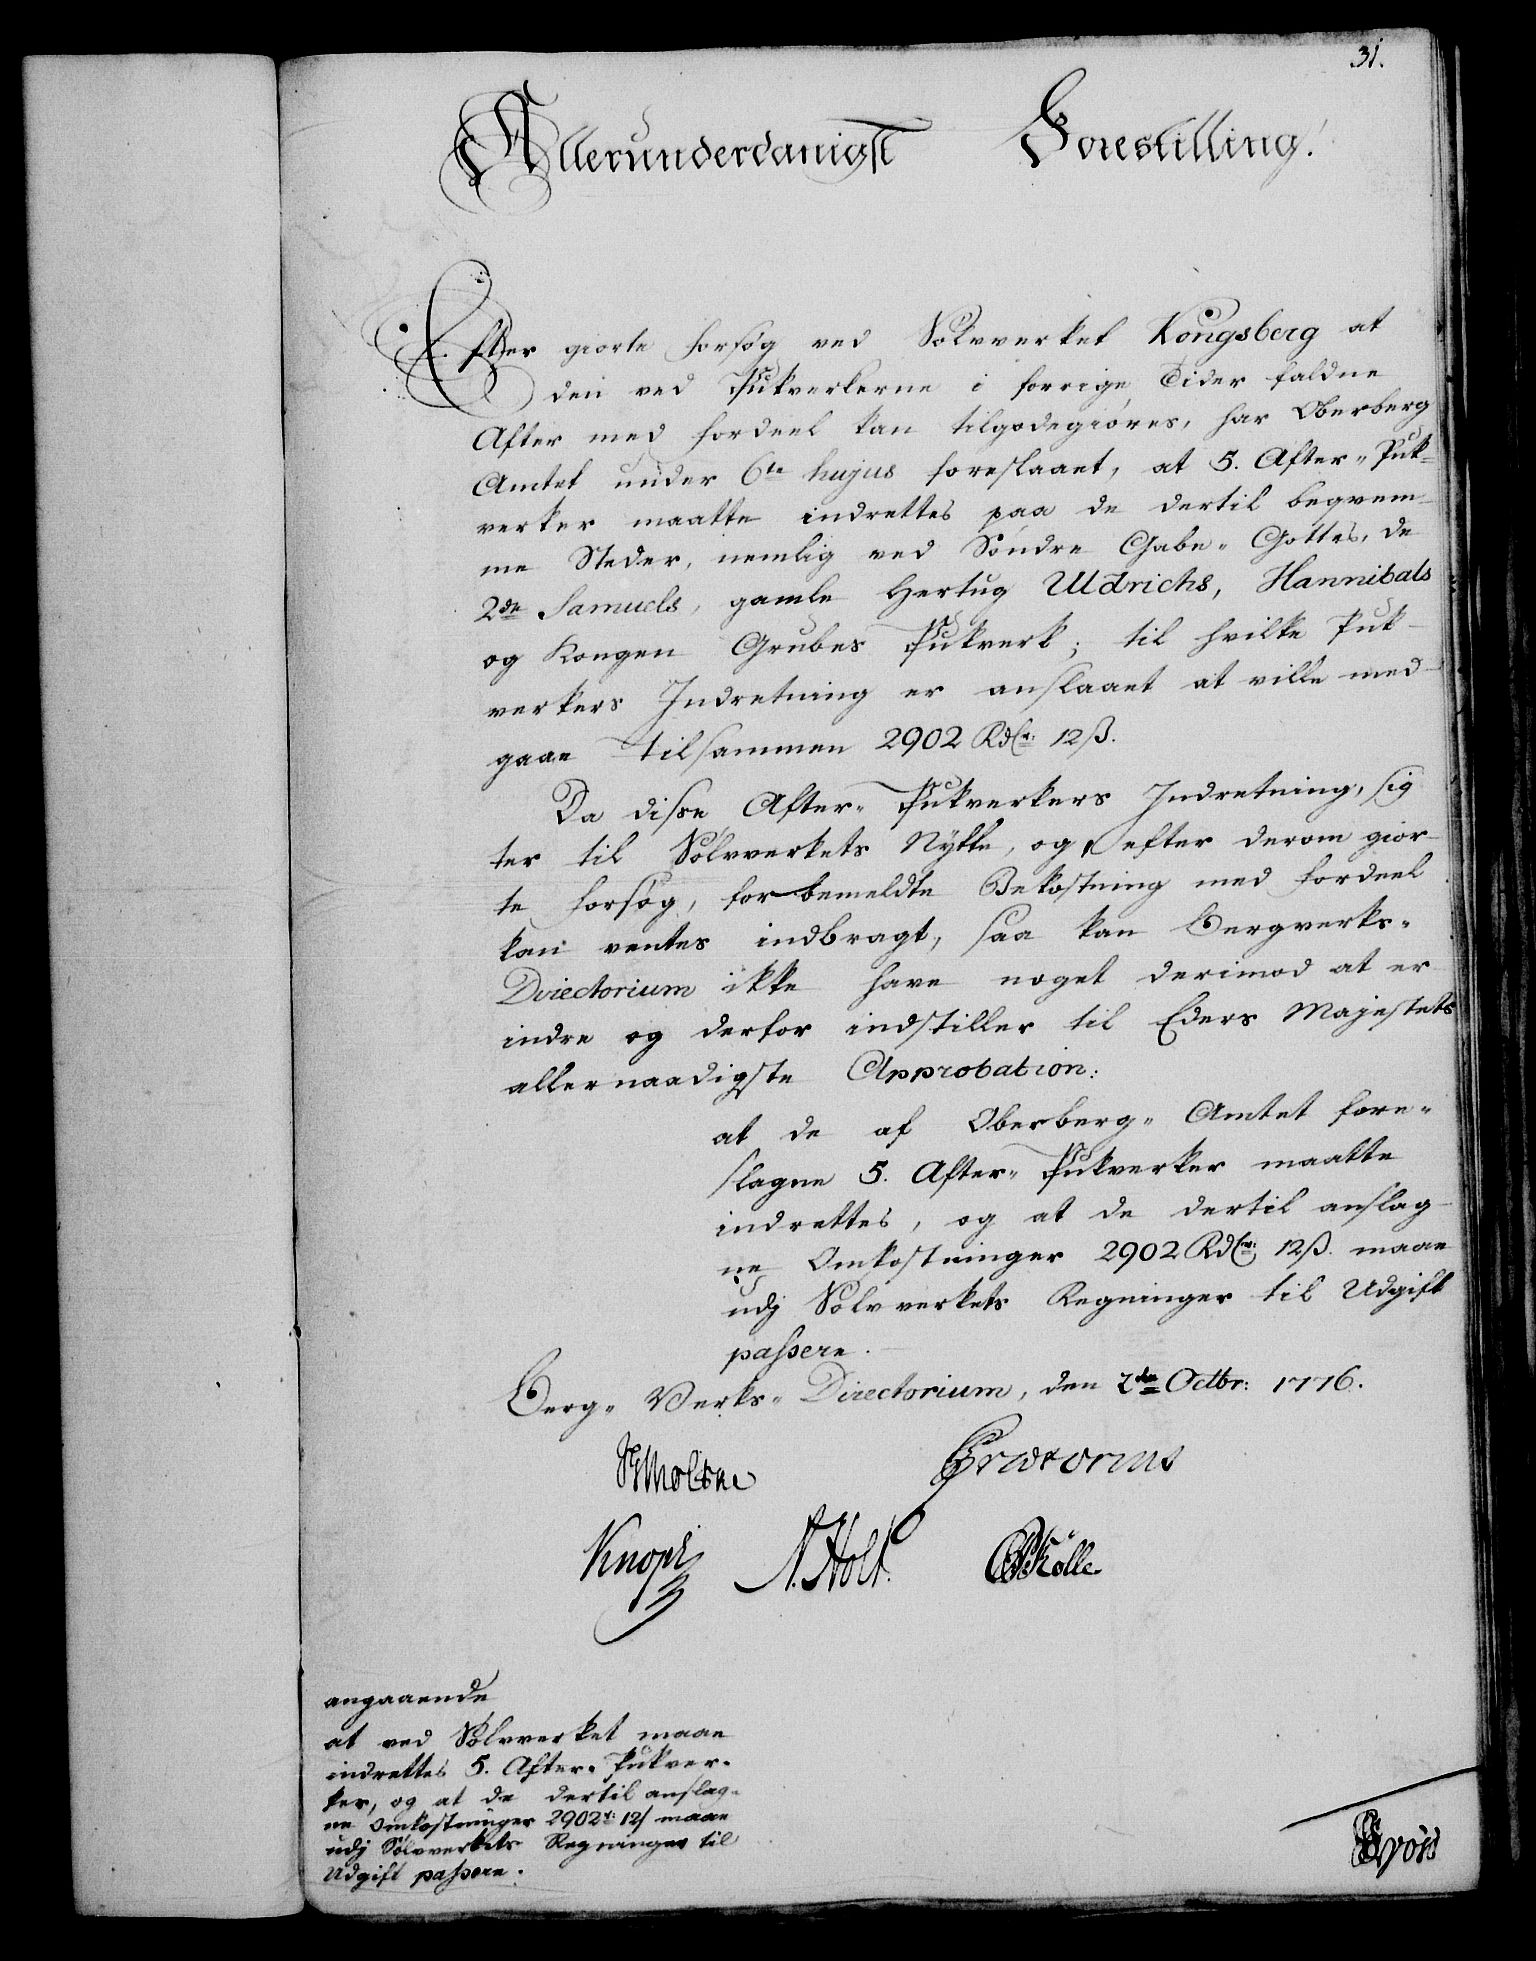 31.
Allerunderdanigst Forestilling.
Efter giorte Forsøg ved Sølvverket Kongsberg at
den ved Pukverkerne i forrige Tider faldne
After med Fordeel kan tilgodegiøres, har Oberberg
Amtet under 6te hujus foreslaaet, at 5. After-Puk-
verker maatte indrettes paa de dertil beqvem-
me Steder, nemlig ved Søndre Gabe-Gottes, de
2de Samuels, gamle Hertug Uldrichs, Hannibals
og Kongen Grubes Pukverk; til hvilke Puk-
verkers Indretning er anslaaet at ville med-
gaae tilsammen 2902 Rdlr: 12ß.
Da disse After-Pukverkers Indretning, sig
ter til Sølvverkets Nytte, og, efter derom gior-
te Forsøg, forbemeldte Bekostning med Fordeel
kan ventes indbragt, saa kan Bergverks-
Directorium ikke have noget derimod at er-
indre og derfor indstiller til Eders Majestets
allernaadigste Approbation:
at de af Oberberg-Amtet fore-
slagne 5. After-Pukverker maatte
indrettes, og at de dertil anslag-
ne Omkostninger 2902 Rdlr: 12ß. maae
udj Sølvverkets Regninger til Udgift
passere.
Berg-Verks-Directorium, den 2de Octbr: 1776.
Knoph N. Holt. Kölle
angaaende
at ved Sølvverket maae
indrettes 5. After-Pukver-
ker, og at de dertil anslag-
ne Omkostninger 2902r: 12ß maae
udj Sølvverkets Regninger til
Udgift passere.